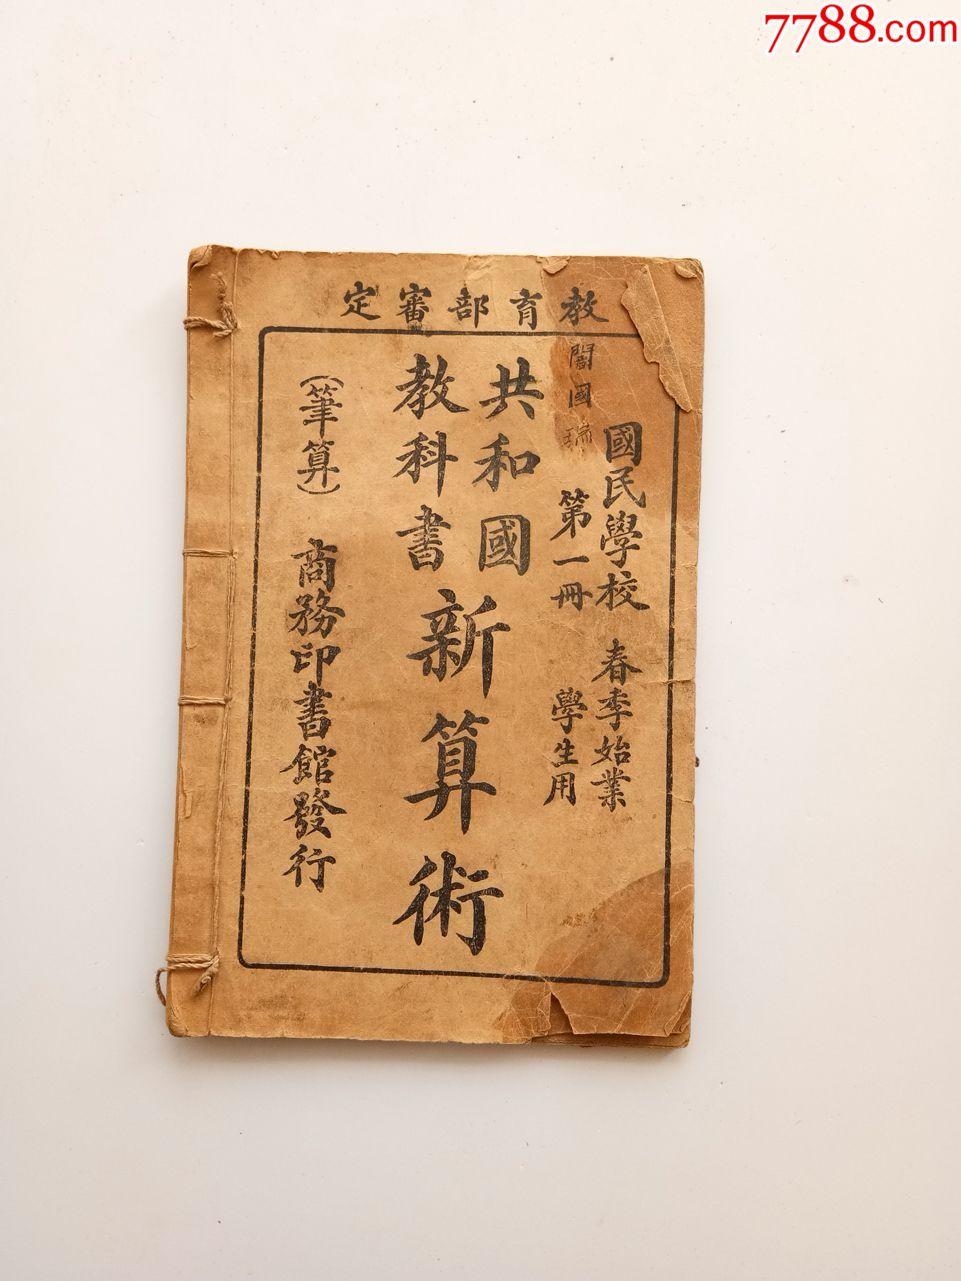 7788.com
教育部審定
國民學校 春季始業
第一冊 學生用
閻國瑞
共和國
教科書
新算術
(筆算) 商務印書館發行